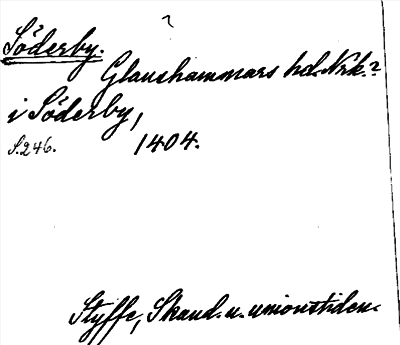 ?
Söderby.
Glanshammars hd. Nrk.?
i Söderby,
S. 246. 1404.
Styffe, Skand. u. unionstiden.